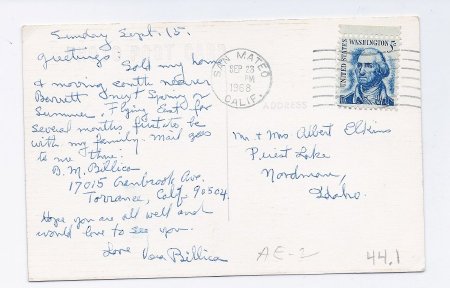 Sunday Sept. 15.
Greetings Sold my home
& moving south nearer
Barrett next Spring or
Summer. Flying East for
several months, first to be
with my family. Mail goes
to me thru:
B. M. Billica
17015 Cranbrook Ave.
Torrance, Calif. 90504.
Hope you are all well and
would love to see you.
Love Vera Billica
SAN MATEO
SEP 23
PM
1968
CALIF.
UNITED STATES
WASHINGTON 5¢
ADDRESS
Mr & Mrs Albert Elkins
Priest Lake
Nordman,
Idaho.
AE-2
44.1